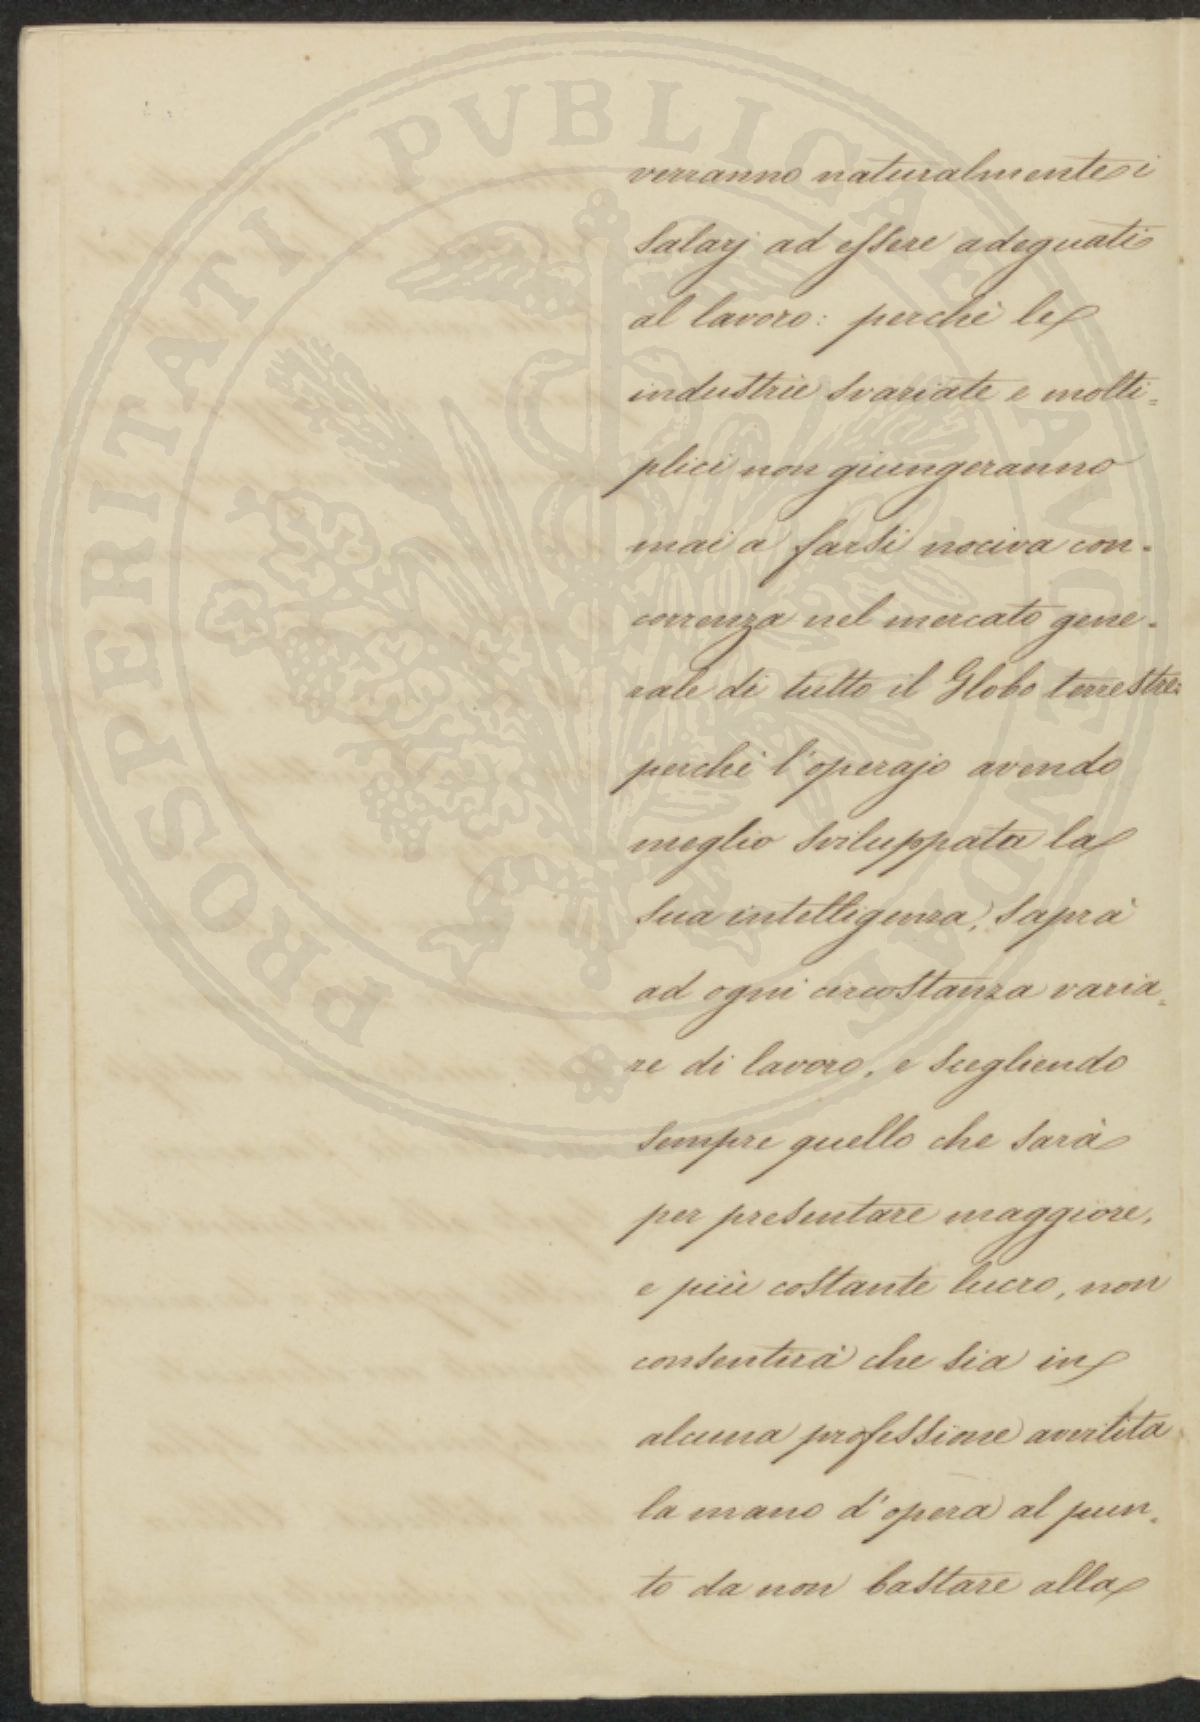 verranno naturalmente i
salarj ad essere adeguati
al lavoro: perchè le
industrie svariate e molti=
plici non giungeranno
mai a farsi nociva con-
correnza nel mercato gene-
rale di tutto il Globo terrestre:
perchè l'operajo avendo
meglio sviluppata la
sua intelligenza, saprà
ad ogni circostanza varia=
re di lavoro, e scegliendo
sempre quello che sarà
per presentare maggiore,
e più costante lucro, non
consentirà che sia in
alcuna professione avvilita
la mano d'opera al pun=
to da non bastare alla
PROSPERITATI PVBLICAE AVGENDAE